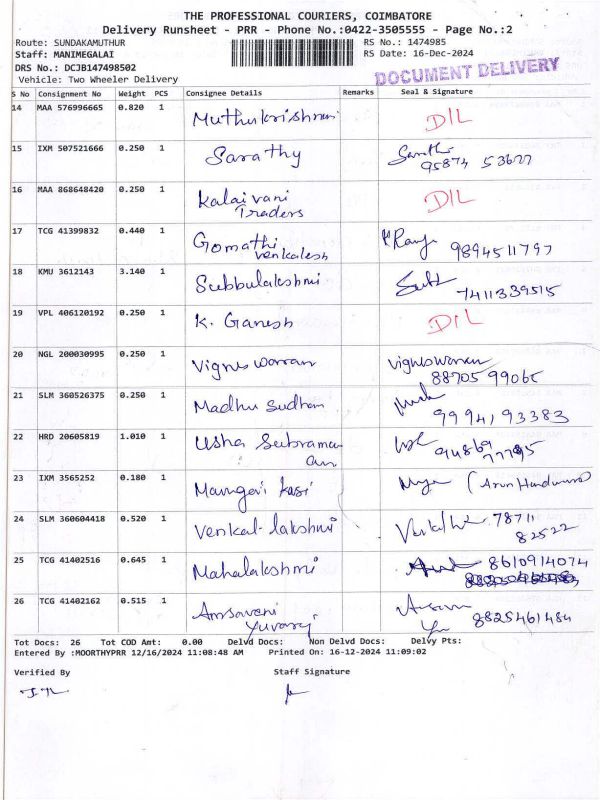 THE PROFESSIONAL COURIERS, COIMBATORE
Delivery Runsheet - PRR - Phone No.:0422-3505555 - Page No.:2
Route: SUNDAKAMUTHUR RS No.: 1474985
Staff: MANIMEGALAI RS Date: 16-Dec-2024
DRS No.: DCJB147498502
Vehicle: Two Wheeler Delivery
DOCUMENT DELIVERY
S No Consignment No Weight PCS Consignee Details Remarks Seal & Signature
14 MAA 576996665 0.820 1 Muthukrishnan D/L
15 IXM 507521666 0.250 1 Sarathy 95874 53627
16 MAA 868648420 0.250 1 Kalaivani D/L
Traders
17 TCG 41399832 0.440 1 Gomathi 9894511797
Venkatesh
18 KMU 3612143 3.140 1 Subbulakshmi 7411339515
19 VPL 406120192 0.250 1 K. Ganesh D/L
20 NGL 200030995 0.250 1 Vigneswaran Vigneswaran
88705 99065
21 SLM 360526375 0.250 1 Madhu Sudhan
9994193383
22 HRD 20605819 1.010 1 Usha Subraman
ian
23 IXM 3565252 0.180 1 Kasi
24 SLM 360604418 0.520 1 Venkat lakshmi 78711
82522
25 TCG 41402516 0.645 1 Mahalakshmi 8610914074
26 TCG 41402162 0.515 1 Amsaveni
Yuvaraj 8825461484
Tot Docs: 26 Tot COD Amt: 0.00 Delvd Docs: Non Delvd Docs: Delvy Pts:
Entered By :MOORTHYPRR 12/16/2024 11:08:48 AM Printed On: 16-12-2024 11:09:02
Verified By Staff Signature